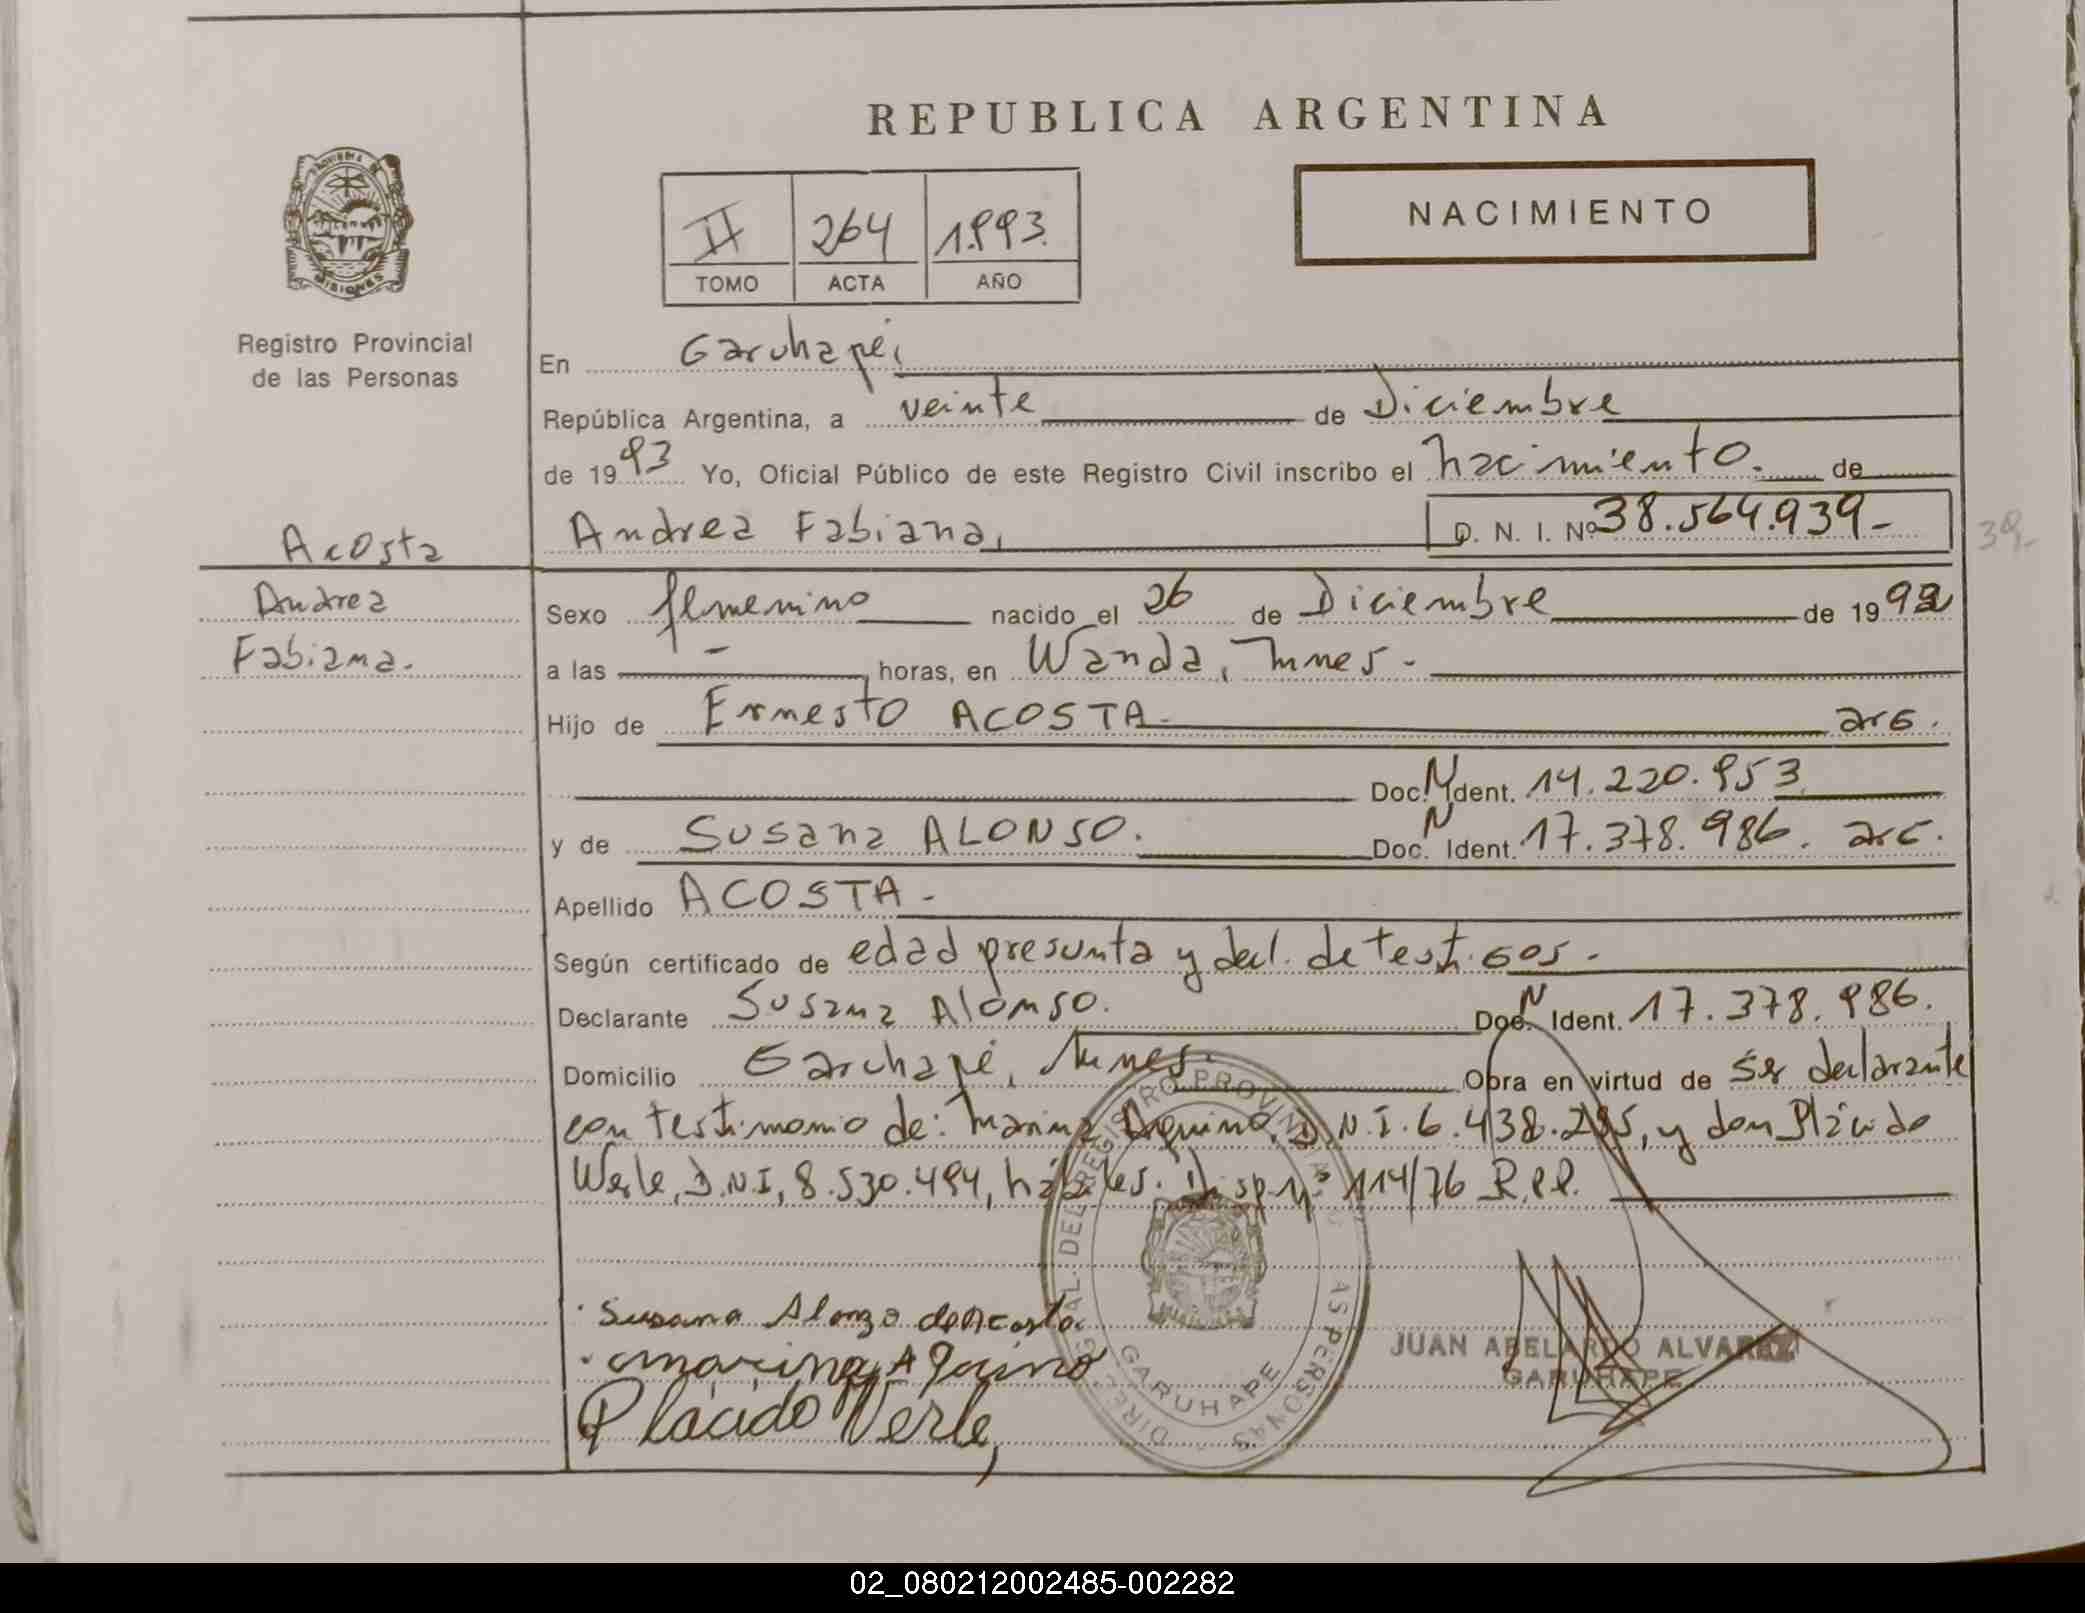 REPUBLICA ARGENTINA
NACIMIENTO
II 264 1993.
TOMO ACTA AÑO
PROVINCIA DE
MISIONES
Registro Provincial
de las Personas
En Garuhapé,
República Argentina, a veinte de Diciembre
de 1993 Yo, Oficial Público de este Registro Civil inscribo el nacimiento. de
Acosta
Andrea Fabiana, D. N. I. Nº 38.564.939-
39-
Andrea
Fabiana.
Sexo femenino nacido el 26 de Diciembre de 1992
a las - horas, en Wanda, Mnes-
Hijo de Ernesto ACOSTA- arg.
Doc. N Ident. 14.220.953
y de Susana ALONSO. Doc. N Ident. 17.378.986. arg.
Apellido ACOSTA-
Según certificado de edad presunta y decl. de testigos-
Declarante Susana Alonso. Doc. N Ident. 17.378.986.
Domicilio Garuhapé, Mnes. Obra en virtud de ser declarante
con testimonio de: Marina Aquino, D.N.I. 6.438.295, y don Plácido
Werle, D.N.I, 8.530.494, hábiles. Disp. Nº 114/76 R.P.P.
Susana Alonzo de Acosta
marina Aquino
Plácido Werle,
DIRE GRAL. DEL REGISTRO PROVINCIAL AS PERSONAS
GARUHAPE
JUAN ABELARDO ALVAREZ
GARUHAPE
02_080212002485-002282